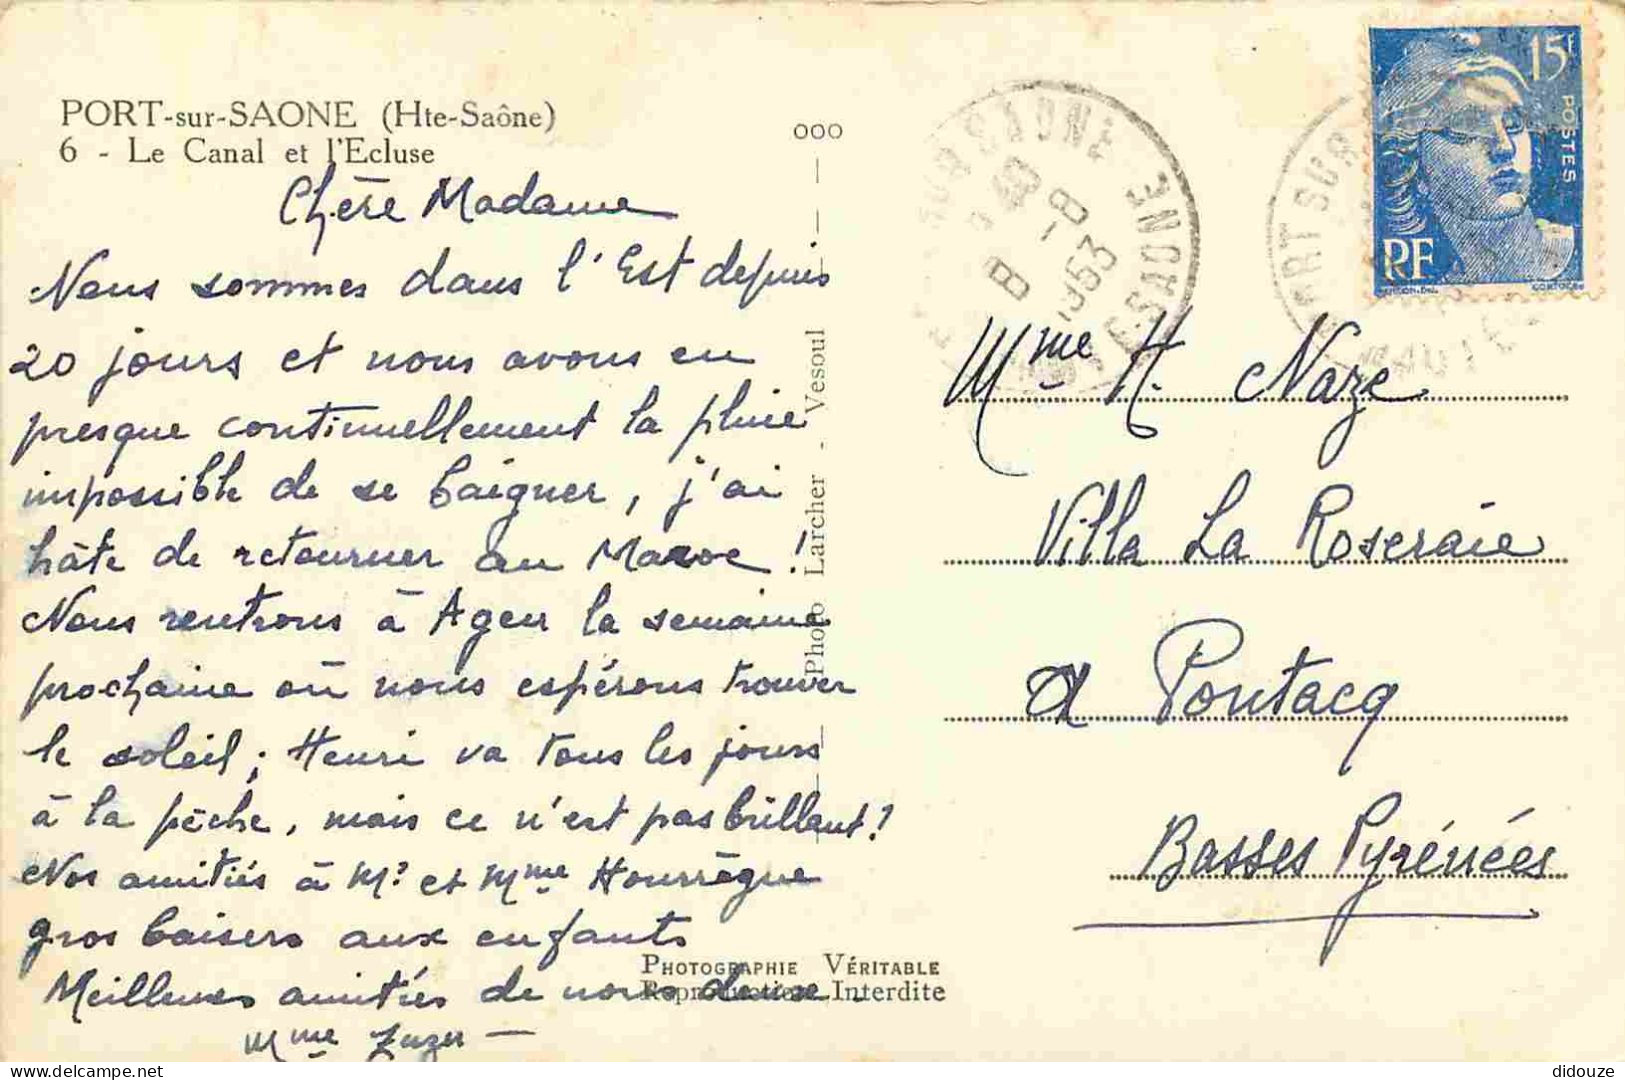 PORT-sur-SAONE (Hte-Saône)
6 - Le Canal et l'Ecluse
Chère Madame
Nous sommes dans l'Est depuis
20 jours et nous avons eu
presque continuellement la pluie
impossible de se baigner, j'ai
hâte de retourner au Maroc !
Nous rentrons à Agen la semaine
prochaine où nous espérons trouver
le soleil ; Henri va tous les jours
à la pêche, mais ce n'est pas brillant !
Nos amitiés à Mr et Mme Hourrègue
gros baisers aux enfants
Meilleures amitiés de nous deux -
Mme
000
Photo Larcher - Vesoul
PHOTOGRAPHIE VÉRITABLE
Reproduction Interdite
SUR SAONE
8 - 8
1953
HTE-SAONE
PORT SUR
HAUTE
15F
POSTES
RF
Mme H. Naze
Villa La Roseraie
à Pontacq
Basses Pyrénées
didouze